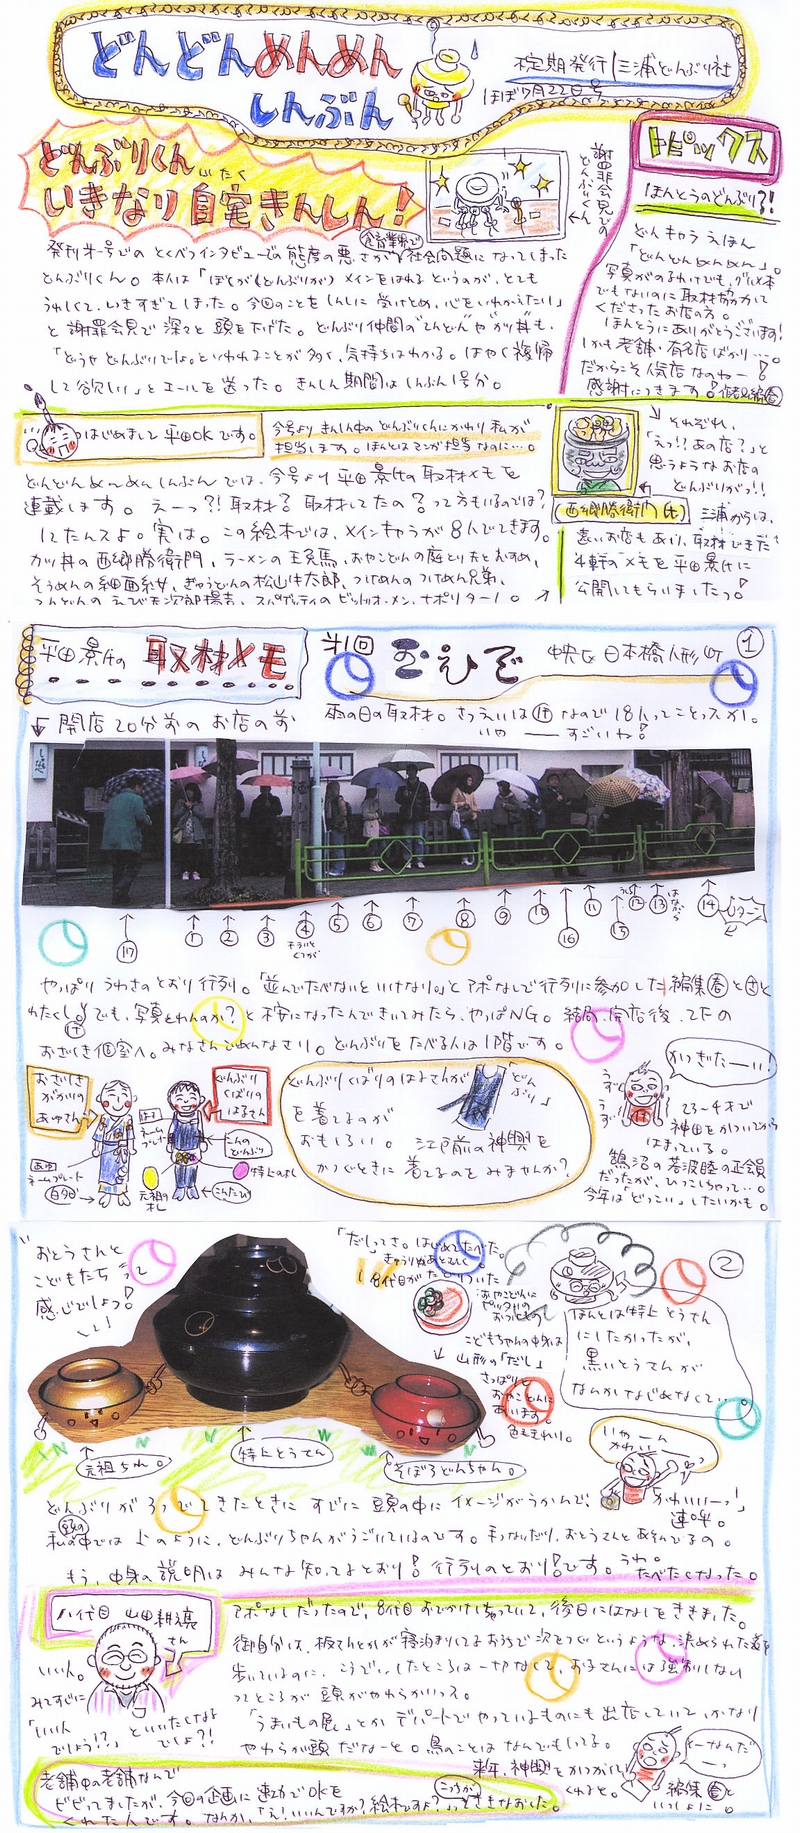 どんどんめんめん
しんぶん
不定期発行/三浦どんぶり社
ほぼ7月22日号
どんぶりくん
いきなり自宅きんしん!
じたく
謝罪会見での
どんぶりくん
発刊オ号でのとくべつインタビューでの態度の悪さが食育業界で社会問題になってしまった
どんぶりくん。本人は「ぼくが(どんぶりが)メインをはれるというのが、とても
うれしくて、いきすぎてしまった。今回のことをしんしに受けとめ、心をいれかえたい」
と謝罪会見で深々と頭を下げた。どんぶり仲間の"てんどん"や"カツ丼"も、
「どうせどんぶりでしょ。といわれることが多く、気持ちはわかる。はやく復帰
して欲しい」とエールを送った。きんしん期間はしんぶん1号分。
トピックス
ほんとうのどんぶり?!
どんキャラえほん
「どんどんめんめん」。
写真がのるわけでも、グルメ本
でもないのに取材協力して
くださったお店の方。
ほんとうにありがとうございます!
しかも老舗・有名店ばかり…。
だからこそ人気店なのねー!
感謝につきます!
はじめまして平田OKです。
今号よりきんしん中のどんぶりくんにかわり私が
担当します。ほんとはマンガ担当なのに…。
どんどんめんめんしんぶんでは、今号より平田景氏の取材メモを
連載します。えーっ?!取材?取材してたの?って方もいるのでは?
してたんスよ。実は。この絵本では、メインキャラが8人でてきます。
カツ丼の西郷勝衛門、ラーメンの王兎馬、おやこどんの庭とり夫とむすめ、
そうめんの細面糸女、ぎゅうどんの松山牛太郎、つけめんのつけめん兄弟、
てんどんのえび天次郎揚吉、スパゲッティのビットリオ・メン・ナポリターノ。
それぞれ、
「えっ!?あの店?」と
思うようなお店の
どんぶりがっ!!
(西郷勝衛門(氏)
三浦からは、
遠いお店もあり、取材できた
4軒のメモを平田景氏に
公開してもらいましたっ!
平田景氏の取材メモ
オ1回 玉ひで 中央区日本橋人形町 1
開店20分前のお店の前
雨の日の取材。さつえいは⑰なので18人ってことっスか。
いやーすごいわ!
⑰ ① ② ③ ④ ⑤ ⑥ ⑦ ⑧ ⑨ ⑩ ⑯ ⑪ ⑮ ⑫ ⑬ ⑭
Uターン
やっぱりうわさのとおり行列。「並んでたべないといけない。」とアポなしで行列に参加した編集春とさと
わたくし。でも、写真とれんのか?と不安になったんできいてみたら、やっぱNG。結局、開店後、2Fの
おざしき個室へ。みなさんごめんなさい。どんぶりをたべる人は1階です。
おざしき
がかりの
あゆさん
どんぶり
くばりの
はるさん
ネームプレート
あゆ
ネームプレート
白たび
元祖の札
こんのどんぶり
特上のふだ
こんたび
どんぶりくばりのはるさんが「どんぶり」
を着てるのが
おもしろい。江戸前の神輿を
かつぐときに着てるのをみませんか?
かつぎたーい!
うず
うず
23~4才で
神田をかついでから
はまっている。
鵠沼の若波睦の正会員
だったが、ひっこしちゃって…。
今年は「どっこい」したいかも。
2
おとうさんと
こどもたちって
感じでしょっ!
「だし」ってさ。はじめてたべた。
8代目がたどりついた
おやこどんに
ピッタリの
おつけもの
こどもちゃんの中身は
山形の「だし」
さっぱりと
おやこどんに
あいます。
色もきれい。
ほんとは特上とうさん
にしたかったが、
黒いとうさんが
なんかなじめなくて…
元祖ちゃん。
特上とうさん
そぼろどんちゃん。
いやーん
かわいー
「かわいいーっ!」
連呼。
どんぶりが3つでてきたときにすでに頭の中にイメージがうかんで、
私の中では上のように、どんぶりちゃんがうごいているのです。手つないだり、おとうさんとあそんでるの。
もう、中身の説明はみんな知ってるとおり!行列のとおり!です。うわ。
たべたくなった。
八代目 山田耕之亮さん
いい人。
みてすぐに
「いい人
でしょう!?」といいたくなる
でしょ?!
アポなしだったので、8代目おでかけしちゃっていて、後日にはなしをききました。
御自分は、板さんとかが寝泊まりしてるおうちで次をつぐというような、決められた道を
歩いているのに、こうでい、したところは一切なくて、お子さんには強制しない
ってところが頭がやわらかいっス。
「うまいもの展」とかデパートでやっているものにも出店していて、かなり
やわらか頭だなーと。鳥のことはなんでもしってる。
来年、神輿をかつがして
くれると。
そーなんだーっ
編集春と
いっしょに。
老舗中の老舗なんで
ビビッてましたが、今回の企画に速功でOKを
くれた人です。なんか、「え!いいんですか?絵本ですよ?」ってこっちがききなおした。